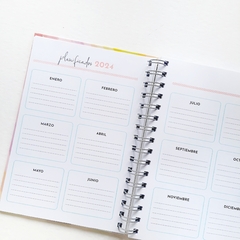 planificador 2024
ENERO
FEBRERO
MARZO
ABRIL
MAYO
JUNIO
JULIO
SEPTIEMBRE
NOVIEMBRE